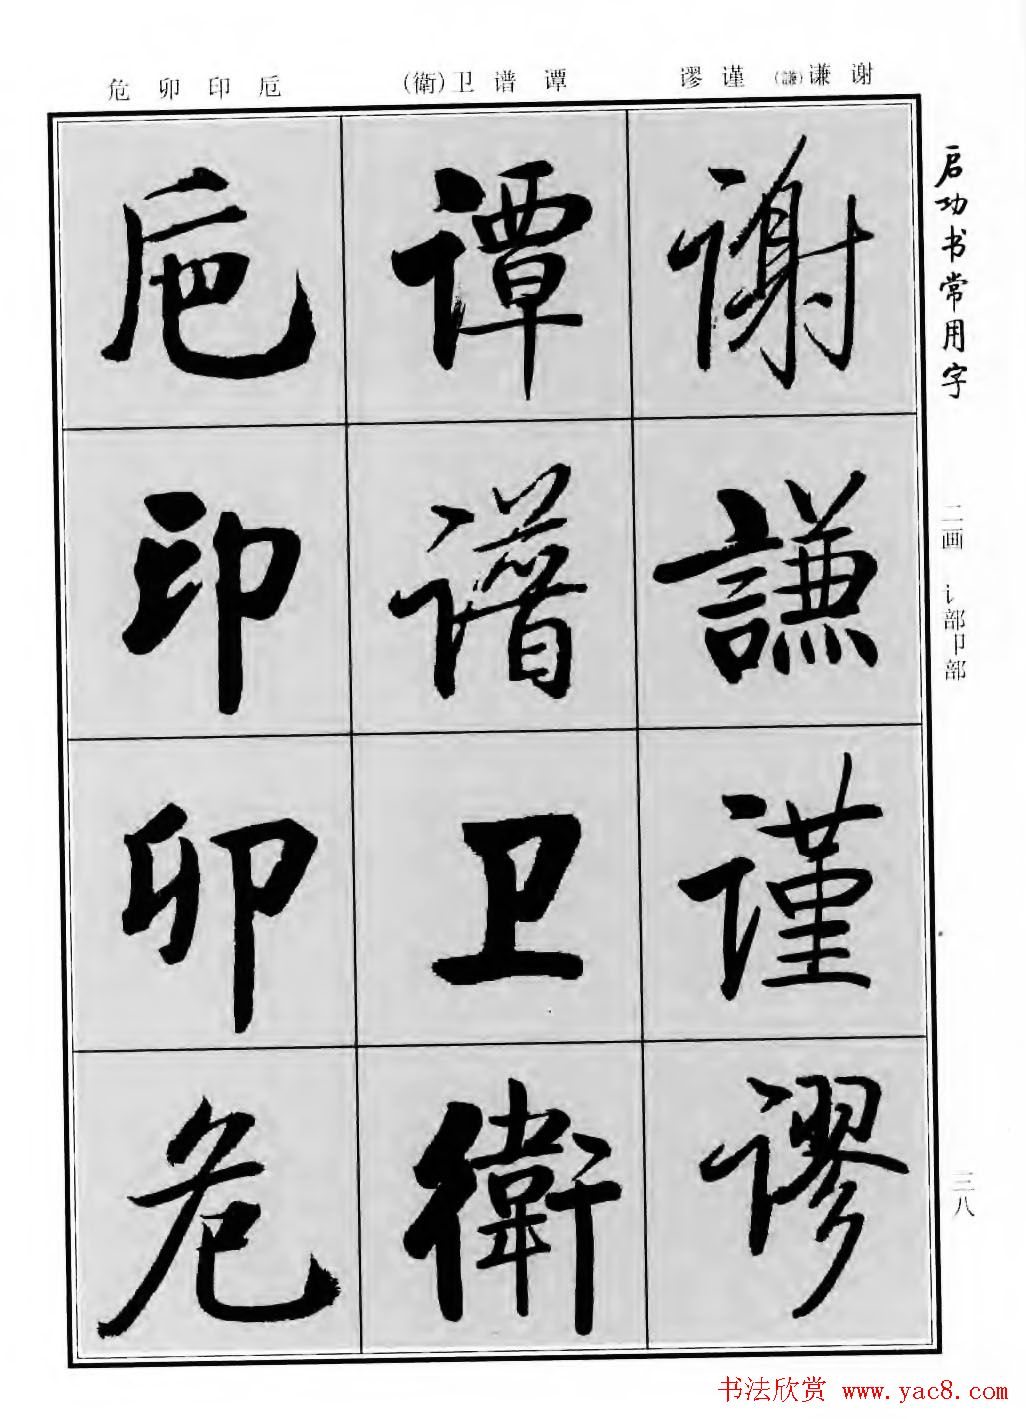 谢谦(謙)谨谬
谭谱卫(衛)
卮印卯危
谢
謙
谨
谬
谭
谱
卫
衛
卮
印
卯
危
启功书常用字
二画 讠部卩部
三八
书法欣赏 www.yac8.com